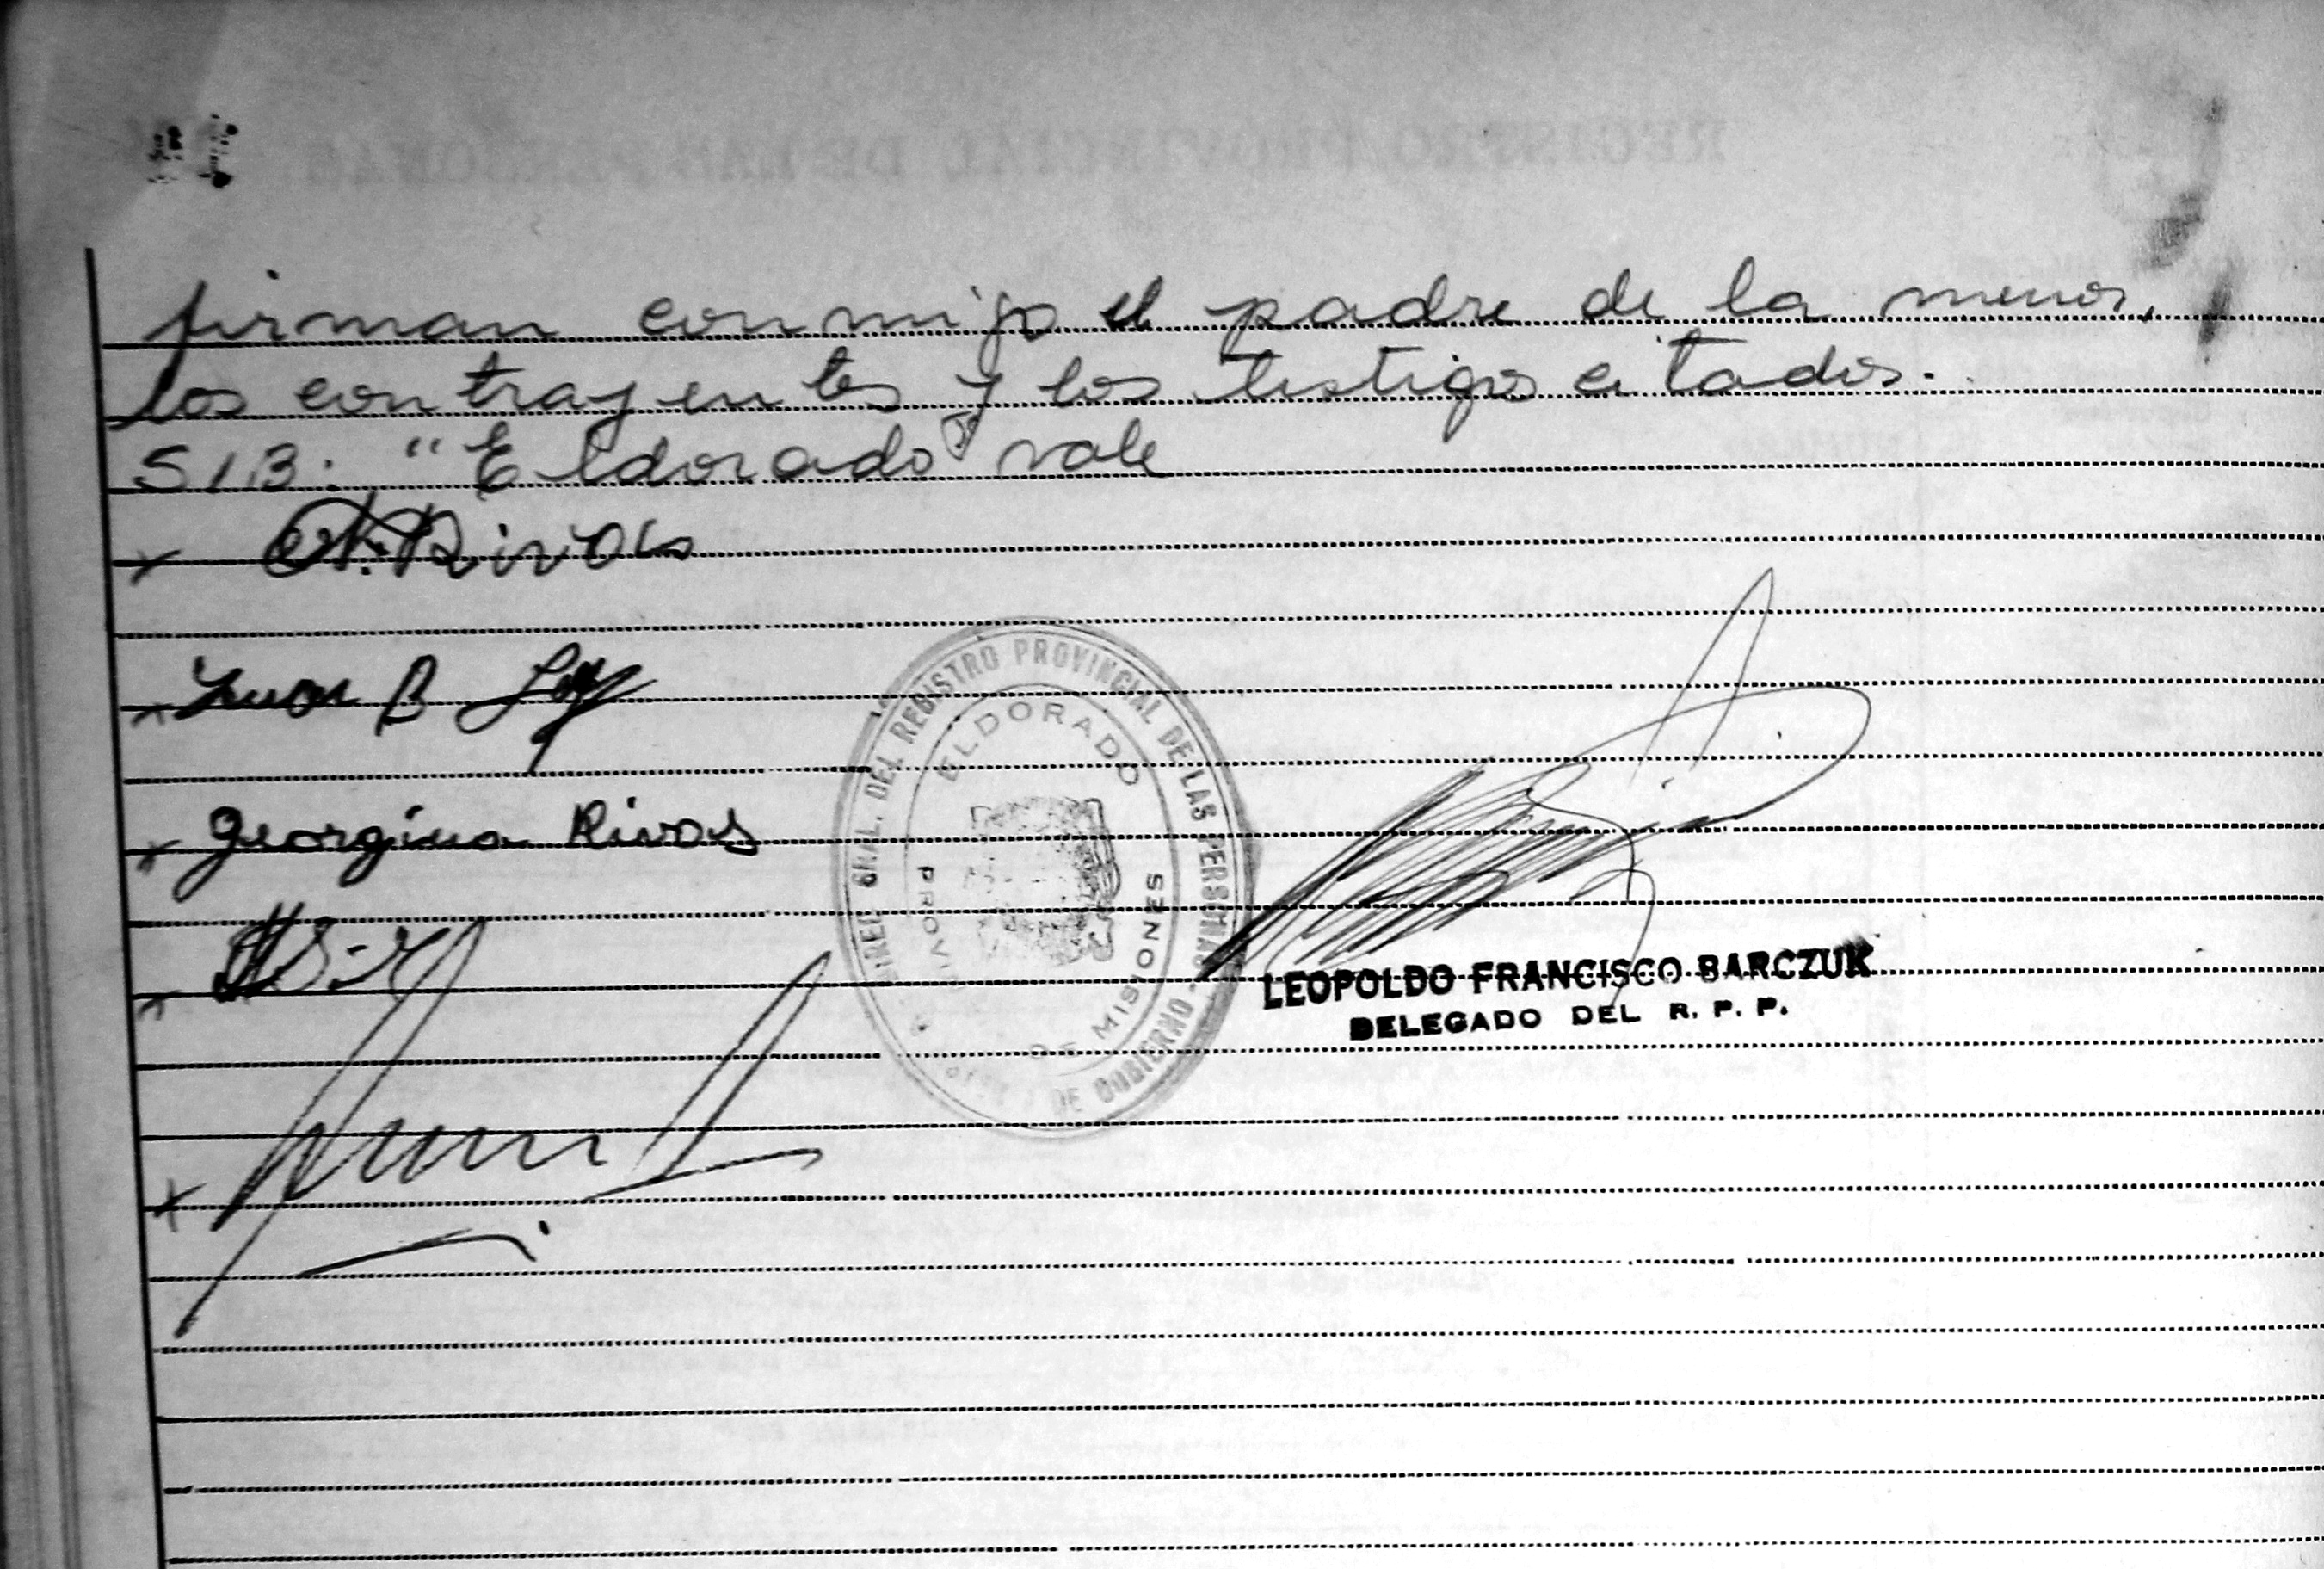 REGISTRO PROVINCIAL DE LAS PERSONAS
firman conmigo el padre de la menor,
los contrayentes y los testigos citados.
S/B: "Eldorado" vale
x N. Rivas
x Juan B
x Georgina Rivas
x
x
DIREC. GRAL. DEL REGISTRO PROVINCIAL DE LAS PERSONAS - DE GOBIERNO
ELDORADO
DE MISIONES
LEOPOLDO FRANCISCO BARCZUK
DELEGADO DEL R. P. P.